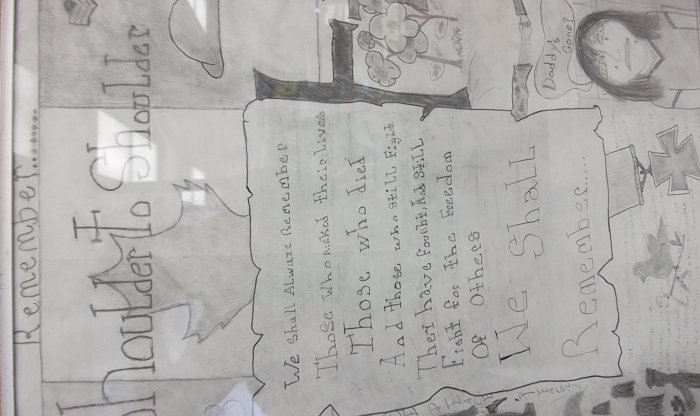 Remember........
Shoulder To Shoulder
Daddy's
Gone?
We Shall Always Remember
Those Who risked their Lives
Those who died
And those who still Fight
They have fought, And Still
Fight for the Freedom
Of Others
We Shall
Remember.....